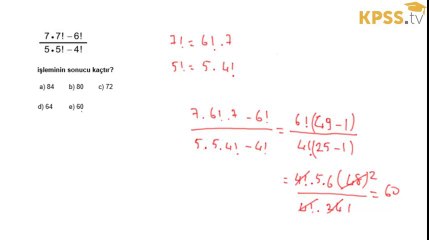 KPSS.tv
7•7! – 6!
5•5! – 4!
işleminin sonucu kaçtır?
a) 84 b) 80 c) 72
d) 64 e) 60
7! = 6! . 7
5! = 5 . 4!
7 . 6! . 7 – 6! = 6! (49 – 1)
5 . 5 . 4! – 4! 4! (25 – 1)
= 4! . 5 . 6 (48)² = 60
4! . 24 1